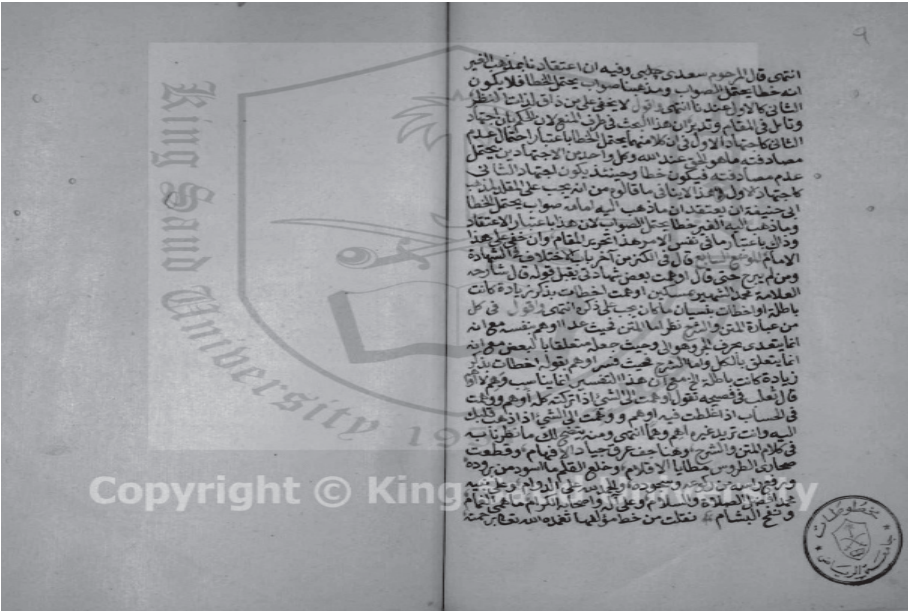 ٩
انتهى قال المرحوم سعدي چلبي وفيه ان اعتقادنا بمذهب الغير
انه خطا يحتمل الصواب ومذهبنا صواب يحتمل الخطا فلا يكون
الثاني كالاول عندنا انتهى واقول لا يخفى على من ذاق لذات النظر
وتامل في المقام وتدبر ان هذا البحث في طرف المنع لان الحكم بان اجتهاد
الثاني كاجتهاد الاول في ان كلا منهما يحتمل الخطا باعتبار احتمال عدم
مصادفته ما هو الحق عند الله وكل واحد من الاجتهادين يحتمل
عدم مصادفته فيكون خطا وحينئذ يكون اجتهاد الثاني
كاجتهاد الاول هذا لا ينافي ما قالوه من انه يجب على المقلد لمذهب
ابي حنيفة ان يعتقد ان ما ذهب اليه امامه صواب يحتمل الخطا
وما ذهب اليه الغير خطا يحتمل الصواب لان هذا باعتبار الاعتقاد
وذاك باعتبار ما في نفس الامر هذا تحرير المقام وان خفي على هذا
الامام الموضع السابع قال في الكنز من آخر باب الاختلاف في الشهادة
ومن لم يبرح حتى قال اوهمت بعض شهادتي يقبل قوله قال شارحه
العلامة محمد الشهير بمسكين اوهمت اخطات بذكر زيادة كانت
باطلة او اخطات بنسيان ما كان يجب علي ذكره انتهى واقول في كل
من عبارة المتن والشرح نظر اما المتن فحيث عدا اوهم بنفسه مع انه
انما يتعدى بحرف الجر وهو الى وحيث جعله متعلقا بالبعض مع انه
انما يتعلق بالكل واما الشرح فحيث فسر اوهم بقوله اخطات بذكر
زيادة كانت باطلة الخ مع ان هذا التفسير انما يناسب وهم لا اوهم
قال ثعلب في فصيحه تقول اوهمت الى الشئ اذا تركته كله أوهم ووهمت
في الحساب اذا غلطت فيه اوهم ووهمت الى الشئ اذا ذهب قلبك
اليه وانت تريد غيره اهم وهما انتهى ومنه يتضح لك ما نظرنا به
في كلام المتن والشرح وهنا جف عرق جياد الافهام وقطعت
صحارى الطروس مطايا الاقلام وخلع القلم ما اسود من بروده
محمد افضل الصلاة والسلام وعلى آله واصحابه الكرام ما همى الغمام
ونفح البشام نقلت من خط مؤلفها تغمده الله تعالى برحمته
مخطوطات
جامعة الرياض
King Saud University
Copyright © King Saud University